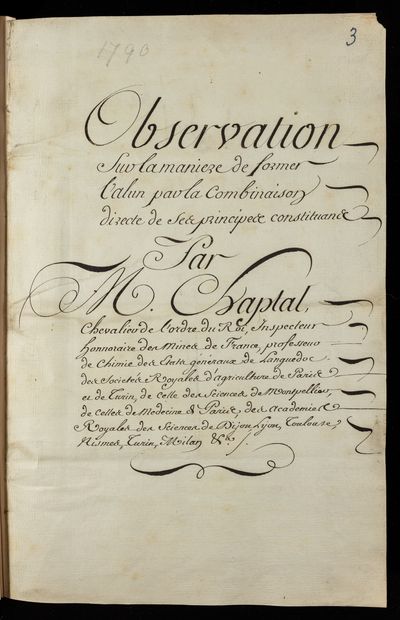 1790
3
Observation
Sur la maniere de former
l'alun par la Combinaison
directe de Ses principes constituans
Par
M. Chaptal,
Chevalier de l'ordre du Roi, Inspecteur
honnoraire des Mines de France, professeur
de Chimie des Etats généraux de Languedoc
des Societés Royales d'agriculture de Paris
et de Turin, de Celle des Sciences de Montpellier,
de Celles de Medecine de Paris, des Academies
Royales des Sciences de Dijon, Lyon, Toulouse,
Nismes, Turin, Milan &c. /.